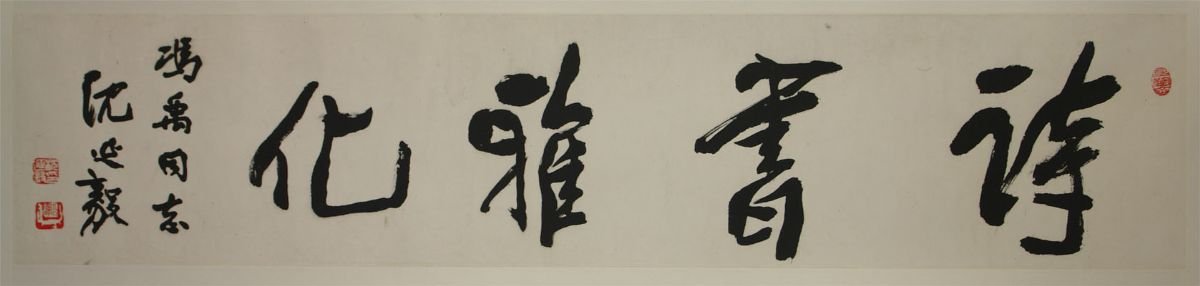 詩書雅化
馮禹同志
沈延毅